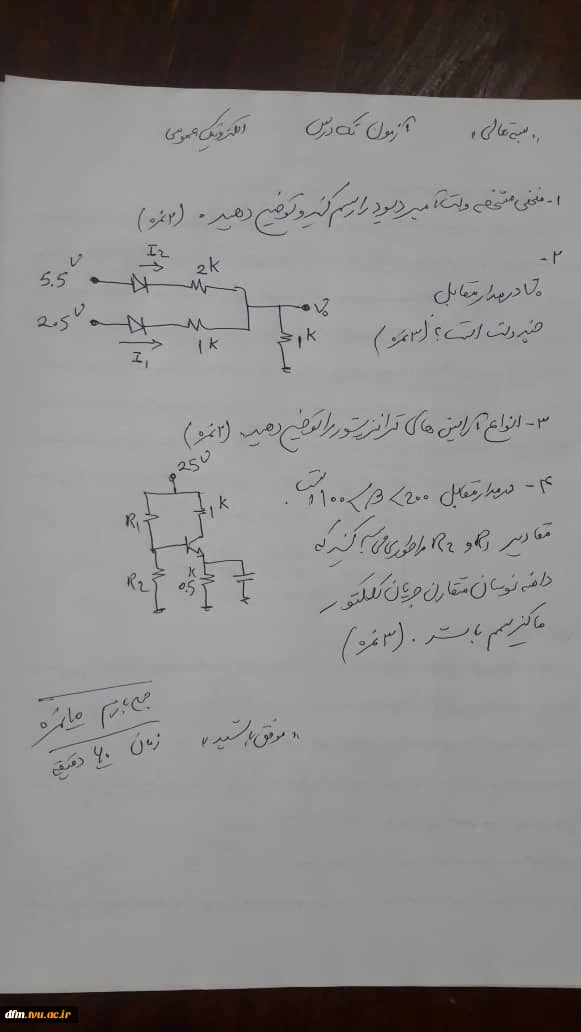 «بسمه تعالی» آزمون تک درس الکترونیک عمومی
۱- منحنی مشخصه ولت آمپر دیود را رسم کنید و توضیح دهید. (۲نمره)
۲-
V₀ در مدار مقابل
چند ولت است؟ (۳نمره)
5.5V
I2
2k
V₀
2.5V
I1
1k
1k
۳- انواع آرایش های ترانزیستور را توضیح دهید (۲نمره)
۴- در مدار مقابل ۱۰۰<β<۲۰۰ است.
مقادیر R1 و R2 را طوری محاسبه کنید که
دامنه نوسان متقارن جریان کلکتور
ماکزیمم باشد. (۳نمره)
25V
R1
1k
R2
0.5k
جمع بارم ۱۰نمره
زمان ۶۰ دقیقه
«موفق باشید»
dfm.tvu.ac.ir